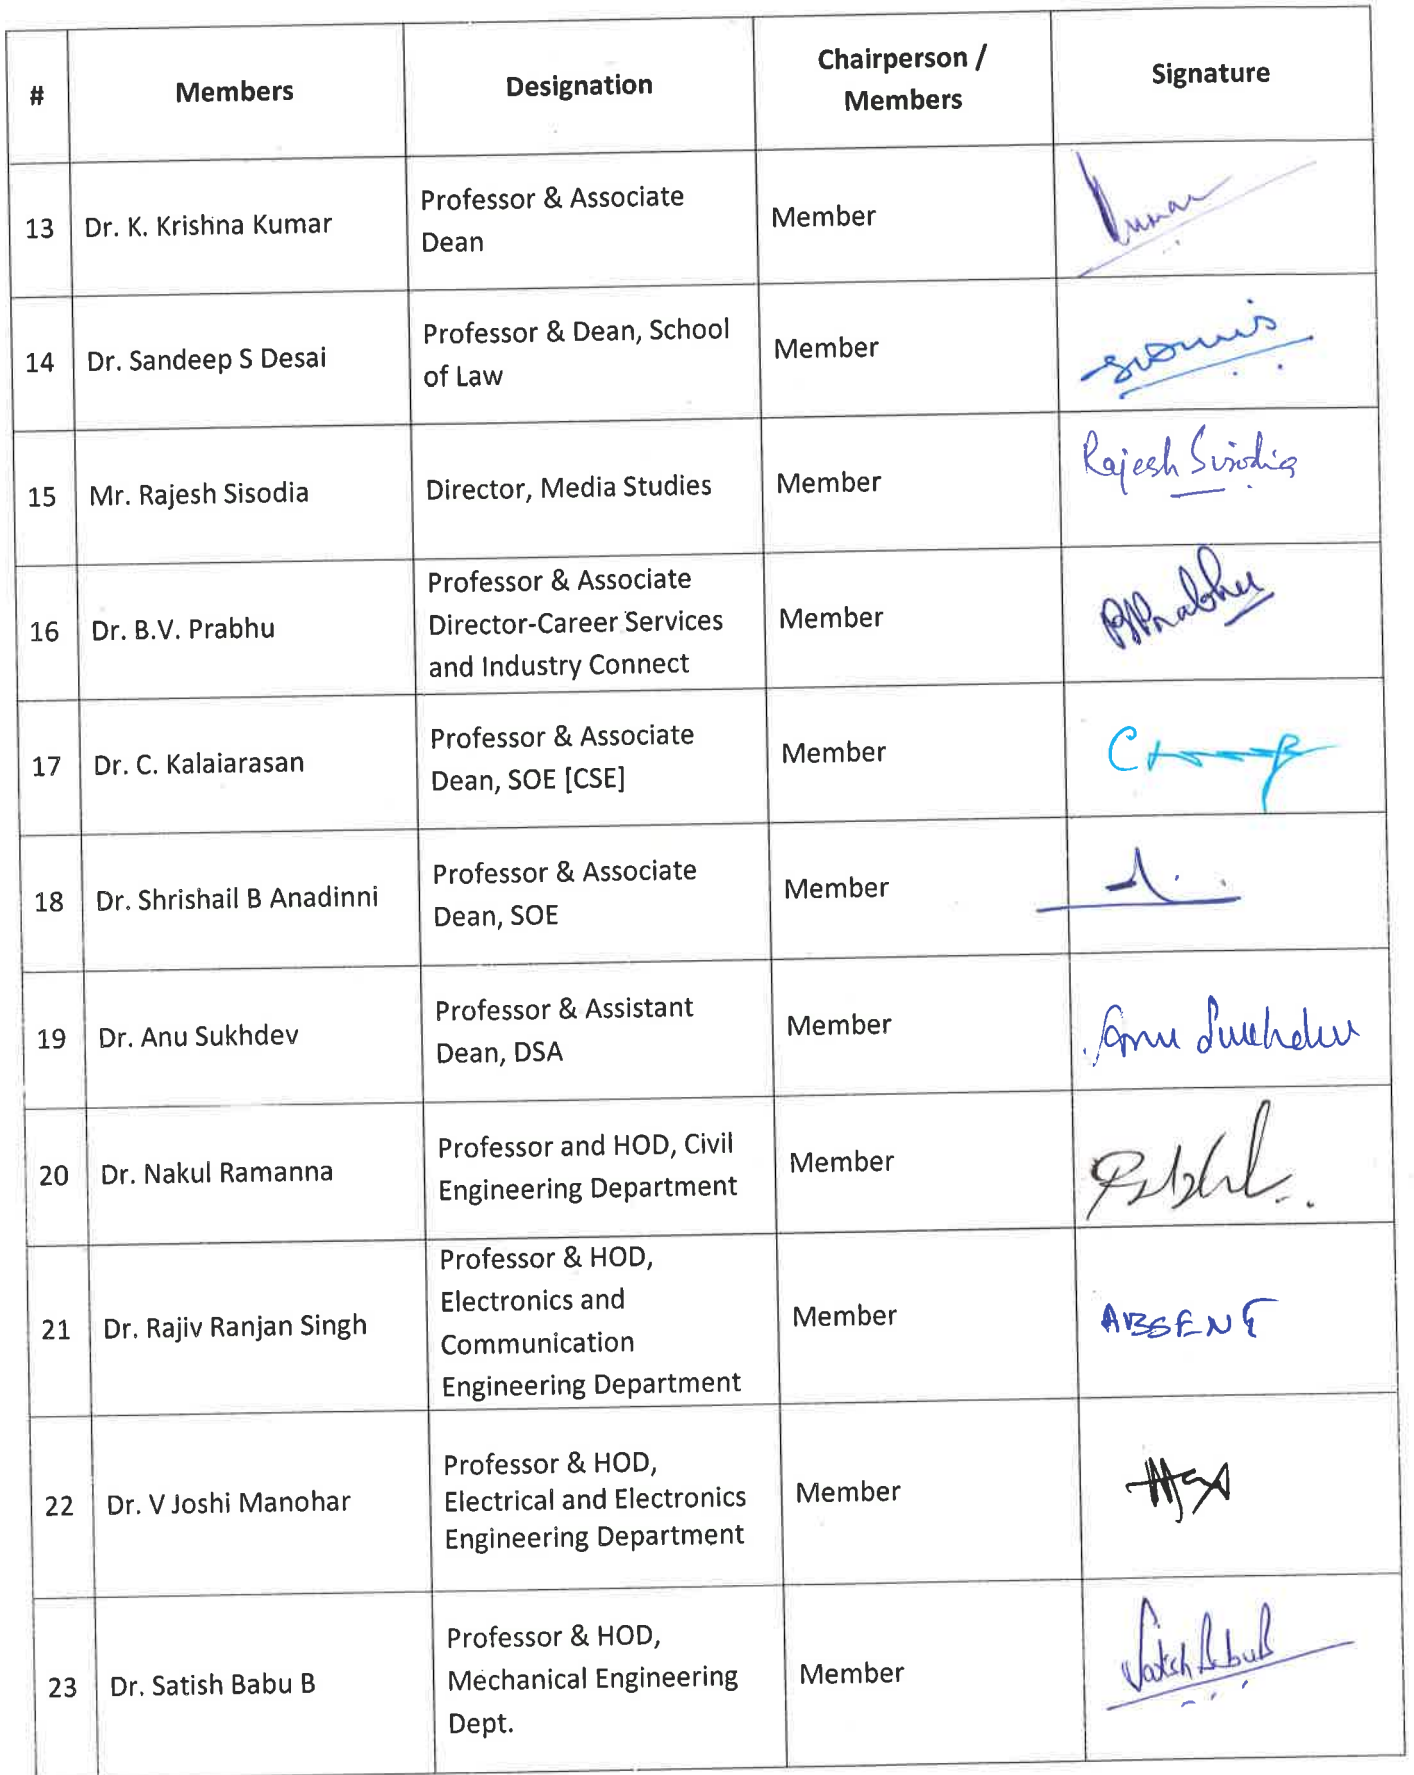 # Members Designation Chairperson / Members Signature
13 Dr. K. Krishna Kumar Professor & Associate Dean Member Kumar
14 Dr. Sandeep S Desai Professor & Dean, School of Law Member
15 Mr. Rajesh Sisodia Director, Media Studies Member Rajesh Sisodia
16 Dr. B.V. Prabhu Professor & Associate Director-Career Services and Industry Connect Member BVPrabhu
17 Dr. C. Kalaiarasan Professor & Associate Dean, SOE [CSE] Member
18 Dr. Shrishail B Anadinni Professor & Associate Dean, SOE Member
19 Dr. Anu Sukhdev Professor & Assistant Dean, DSA Member Anu Sukhdev
20 Dr. Nakul Ramanna Professor and HOD, Civil Engineering Department Member
21 Dr. Rajiv Ranjan Singh Professor & HOD, Electronics and Communication Engineering Department Member ABSENT
22 Dr. V Joshi Manohar Professor & HOD, Electrical and Electronics Engineering Department Member
23 Dr. Satish Babu B Professor & HOD, Mechanical Engineering Dept. Member Satish Babu B